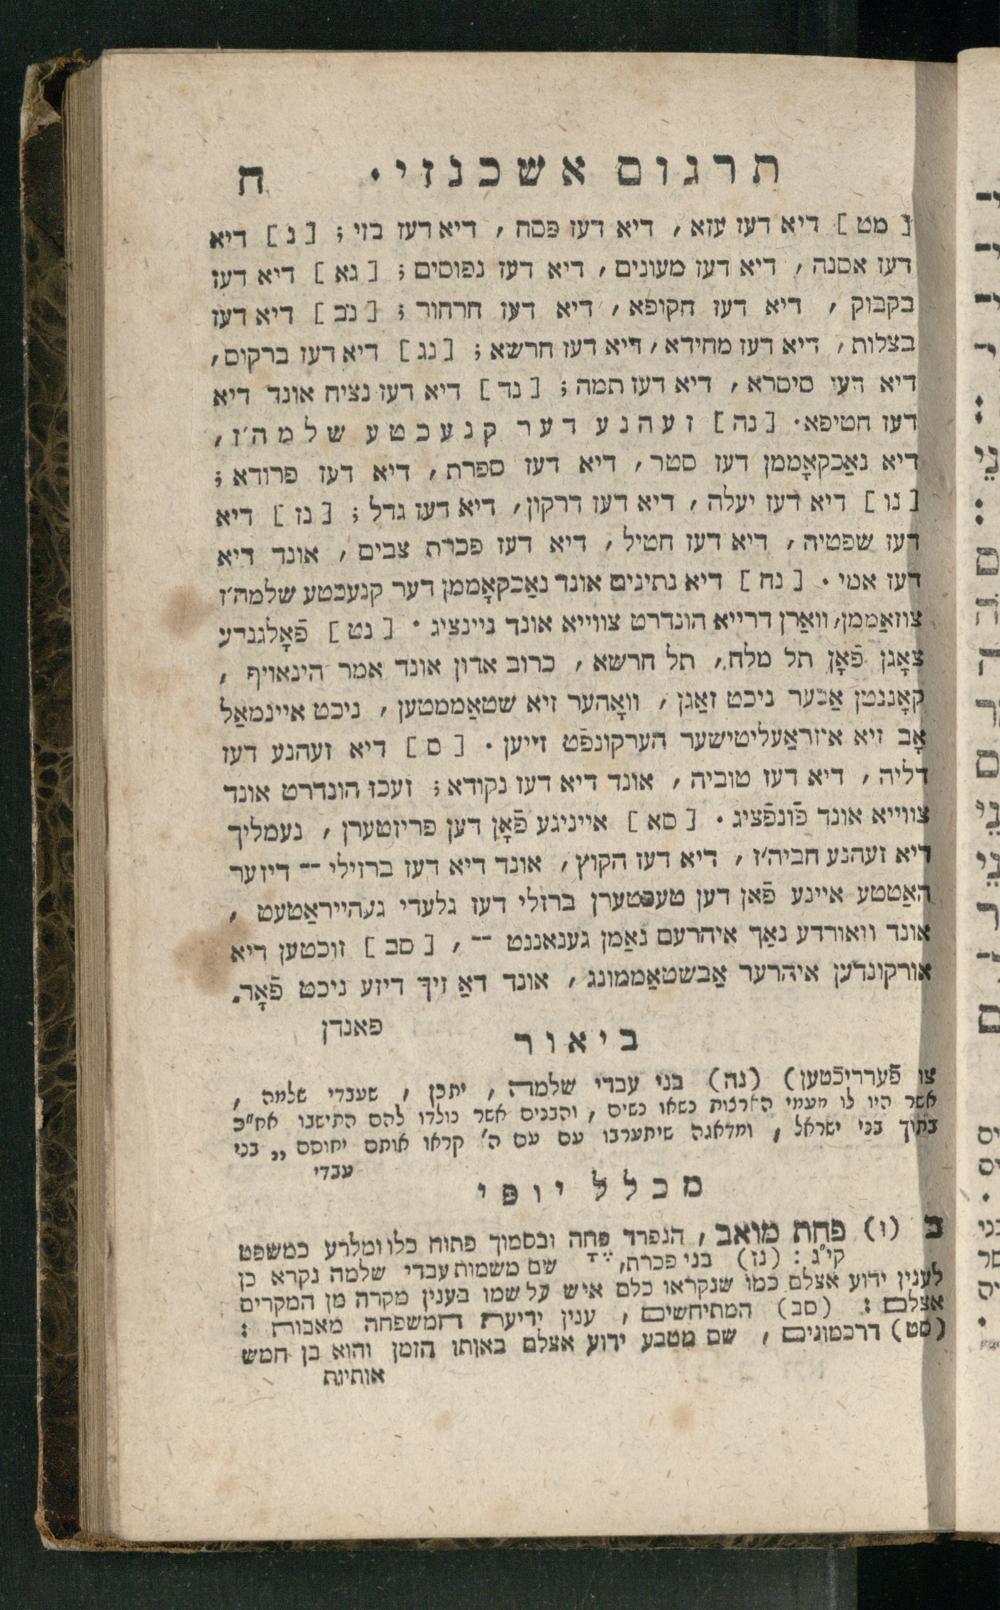 תרגום אשכנזי · ח
[ מט ] דיא דעז עזא, דיא דעז פסח, דיא דעז בזי; [ נ ] דיא
דעז אסנה, דיא דעז מעונים, דיא דעז נפוסים; [ נא ] דיא דעז
בקבוק, דיא דעז חקופא, דיא דעז חרחור; [ נב ] דיא דעז
בצלות, דיא דעז מחידא, דיא דעז חרשא; [ נג ] דיא דעז ברקום,
דיא דעז סיסרא, דיא דעז תמה; [ נד ] דיא דעז נציח אונד דיא
דעז חטיפא· [ נה ] זעהנע דער קנעכטע שלמה'ז,
דיא נאַכקאָממן דעז סטר, דיא דעז ספרת, דיא דעז פרודא;
[ נו ] דיא דעז יעלה, דיא דעז דרקון, דיא דעז גדל; [ נז ] דיא
דעז שפטיה, דיא דעז חטיל, דיא דעז פכרת צבים, אונד דיא
דעז אמי· [ נח ] דיא נתינים אונד נאַכקאָממן דער קנעכטע שלמה'ז
צוזאַממן, וואַרן דרייא הונדרט צווייא אונד ניינציג· [ נט ] פֿאָלגנדע
צאָגן פֿאָן תל מלח, תל חרשא, כרוב אדון אונד אמר הינאויף,
קאָננטן אַבער ניכט זאַגן, וואָהער זיא שטאַממטען, ניכט איינמאַל
אָב זיא איזראַעליטישער הערקונפֿט זייען· [ ס ] דיא זעהנע דעז
דליה, דיא דעז טוביה, אונד דיא דעז נקודא; זעכז הונדרט אונד
צווייא אונד פֿונפֿציג· [ סא ] אייניגע פֿאָן דען פריזטערן, נעמליך
דיא זעהנע חביה'ז, דיא דעז הקוץ, אונד דיא דעז ברזילי -- דיזער
האַטטע איינע פֿאן דען טעכטערן ברזלי דעז גלעדי געהייראַטעט,
אונד וואורדע נאַך איהרעם נאַמן גענאננט --, [ סב ] זוכטען דיא
אורקונדען איהרער אַבשטאַממונג, אונד דאַ זיך דיזע ניכט פֿאָר·
פאנדן
ביאור
צו פֿערריכֿטען) (נה) בני עבדי שלמה, יתכן, שעבדי שלמה,
אשר היו לו מעמי הארצות נשאו נשים, והבנים אשר נולדו להם התישבו אח"כ
בתוך בני ישראל, ומדאגה שיתערבו עם עם ה' קראו אותם יחוסם ,, בני
עבדי
מכלל יופי
ב (ו) פחת מואב, הנפרד פחה ובסמוך פתוח כלו ומלרע כמשפט
קי"ג: (נז) בני פכרת, שם משמות עבדי שלמה נקרא כן
לענין ידוע אצלם כמו שנקראו כלם איש על שמו בענין מקרה מן המקרים
אצלם: (סב) המתיחשים, ענין ידיעת המשפחה מאבות:
(סט) דרכמונים, שם מטבע ידוע אצלם באותו הזמן והוא בן חמש
אותיות